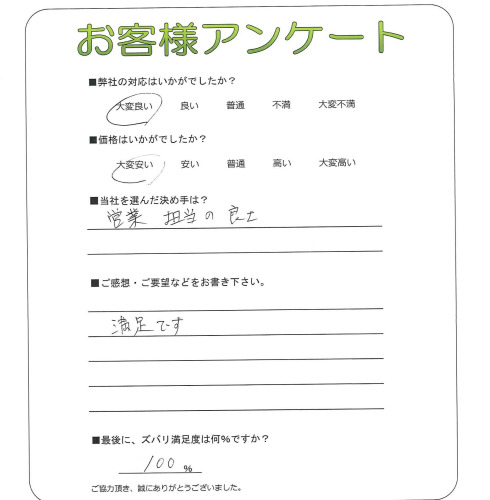 お客様アンケート
■弊社の対応はいかがでしたか？
大変良い 良い 普通 不満 大変不満
■価格はいかがでしたか？
大変安い 安い 普通 高い 大変高い
■当社を選んだ決め手は？
営業 担当の良さ
■ご感想・ご要望などをお書き下さい。
満足です
■最後に、ズバリ満足度は何%ですか？
100 %
ご協力頂き、誠にありがとうございました。